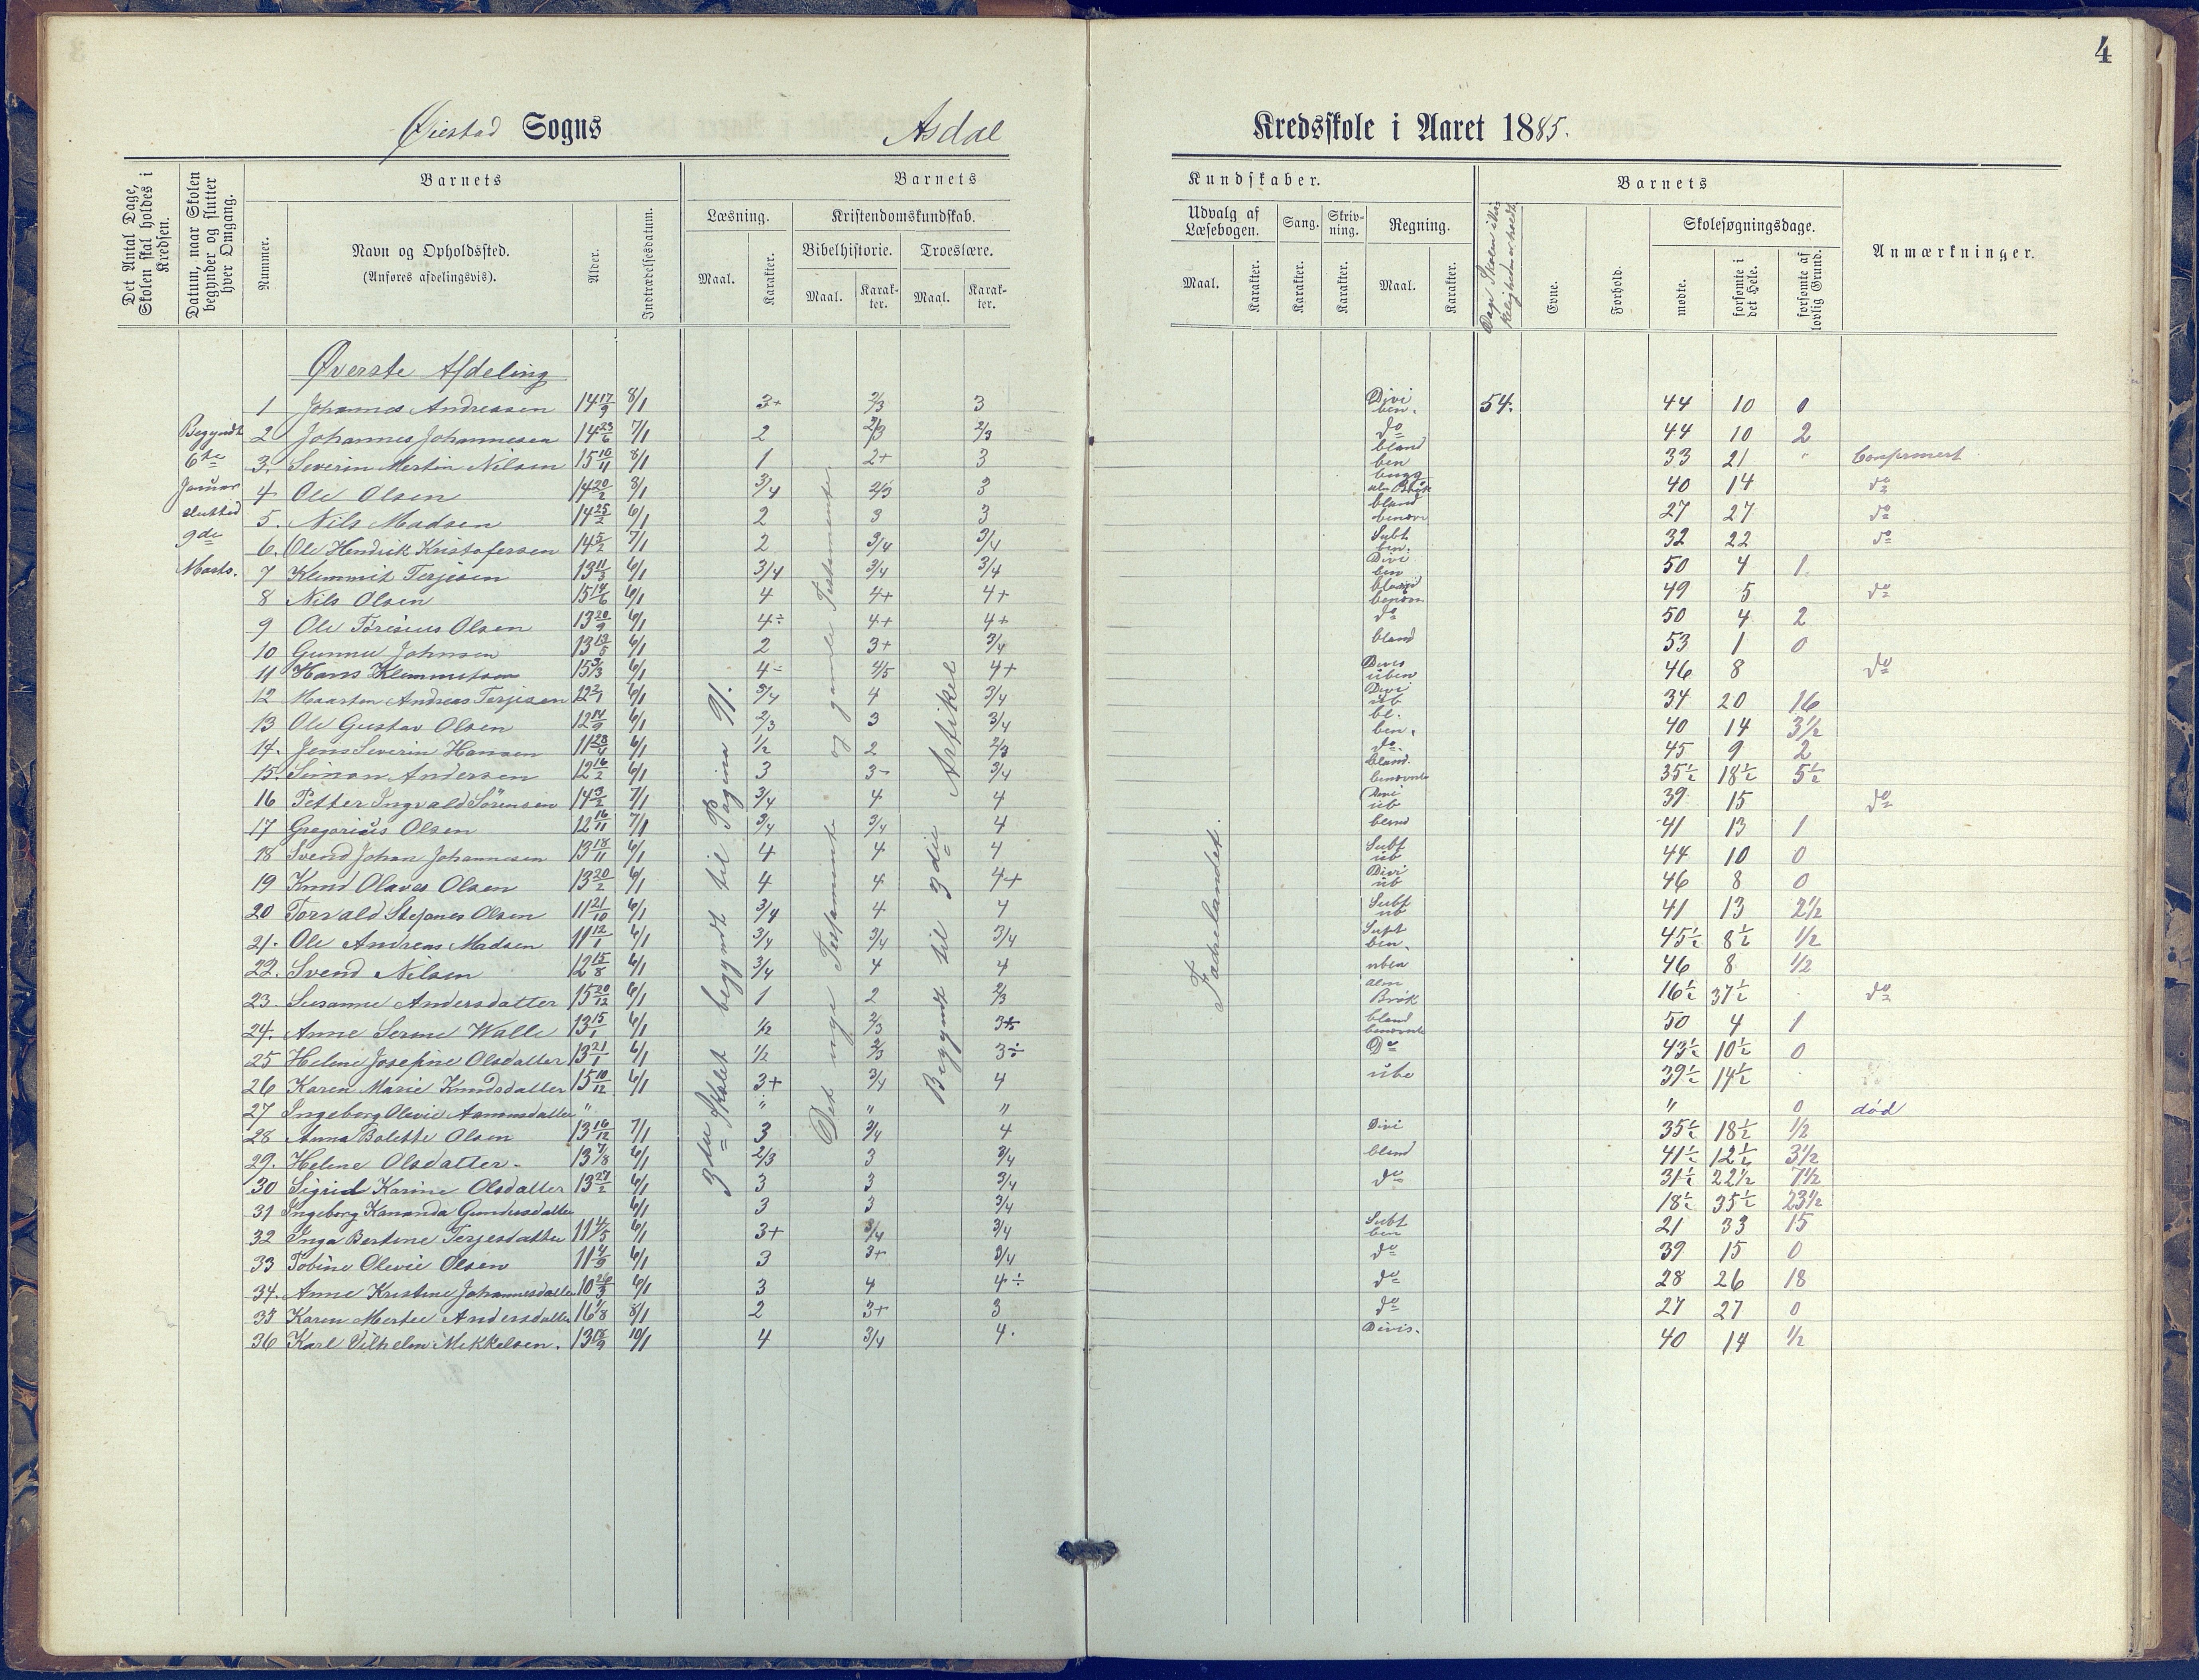 4
Øiestad Sogns Asdal Kredsskole i Aaret 1885.
Det Antal Dage, Skolen skal holdes i Kredsen.
Datum, naar Skolen begynder og slutter hver Omgang.
Barnets
Nummer.
Navn og Opholdssted.
(Anføres afdelingsvis).
Alder.
Indtrædelsesdatum.
Barnets Kundskaber.
Læsning.
Maal.
Karakter.
Kristendomskundskab.
Bibelhistorie.
Maal.
Karakter.
Troeslære.
Maal.
Karakter.
Udvalg af Læsebogen.
Maal.
Karakter.
Sang.
Karakter.
Skrivning.
Karakter.
Regning.
Maal.
Karakter.
Barnets
Evne.
Forhold.
Skolesøgningsdage.
mødte.
forsømte i det Hele.
forsømte af lovlig Grund.
Anmærkninger.
Begyndt
6te
Januar
sluttid
9de
Marts.
3die Skolet begyndt til Pagina 91.
Det nye Testamente og gamle Testamente
Begyndt til 3die Artikel
Fædrelandet.
Øverste Afdeling
1 Johannes Andreasen 14 17/9 8/1 3+ 2/3 3 Divi ben. 54. 44 10 0
2 Johannes Johannesen 14 23/6 7/1 2 2/3 2/3 do 44 10 2
3. Severin Mertin Nilsen 15 10/11 8/1 1 2+ 3 bland ben 33 21 " Confirmert
4 Ole Olsen 14 20/2 8/1 3/4 2/3 3 alm Brøk 40 14 do
5. Nils Madsen 14 25/2 6/1 2 3 3 bland benævn 27 27 do
6. Ole Hendrik Kristofersen 14 5/2 7/1 2 3/4 3/4 Subt ben. 32 22 do
7 Klemmit Terjesen 13 11/3 6/1 3/4 3/4 3/4 Divi ben 50 4 1
8 Nils Olsen 15 14/6 6/1 4 4+ 4+ bland benævn 49 5 do
9 Ole Tørisius Olsen 13 20/9 6/1 4÷ 4+ 4+ do 50 4 2
10 Gunnu Johnsen 13 13/5 6/1 2 3+ 3/4 bland 53 1 0
11 Hans Klemmetsen 15 3/3 6/1 4÷ 4/5 4+ Dives uben 46 8 do
12 Maarten Andreas Terjesen 12 2/1 6/1 3/4 4 3/4 Divi ub 34 20 16
13 Ole Gustav Olsen 12 14/9 6/1 2/3 3 3/4 bl. ben. 40 14 3½
14. Jens Severin Hansen 11 23/4 6/1 ½ 2 2/3 do. 45 9 2
15. Simon Andersen 12 16/2 6/1 3 3- 3/4 bland. benævnte 35½ 18½ 5½
16 Petter Ingvald Sørensen 14 3/2 7/1 3/4 4 4 Divi ub 39 15 do
17 Gregorius Olsen 12 16/11 7/1 3/4 3/4 4 bland 41 13 1
18 Svend Johan Johannesen 13 18/11 6/1 4 4 4 Subt ub 44 10 0
19 Knud Olaves Olsen 13 20/2 6/1 4 4 4+ Divi ub 46 8 0
20 Torvald Stefanes Olsen 11 21/10 6/1 3/4 4 4 Subt ub 41 13 2½
21. Ole Andreas Madsen 11 12/1 6/1 3/4 3/4 3/4 Supt ben. 45½ 8½ ½
22. Svend Nilsen 12 15/8 6/1 3/4 4 4 uben 46 8 ½
23. Susanne Andersdatter 15 20/12 6/1 1 2 2/3 alm Brøk 16½ 37½ do
24. Anne Serine Walle 13 15/1 6/1 ½ 2/3 3+ bland benævnte 50 4 1
25 Helene Josefine Olsdatter 13 21/1 6/1 ½ 2/3 3÷ Do 43½ 10½ 0
26 Karen Marie Knudsdatter 15 10/12 6/1 3+ 3/4 4 ube 39½ 14½
27 Ingeborg Olevie Aanonsdatter " " " " " 0 død
28 Anna Bolette Olsen 13 16/12 7/1 3 3/4 4 Divi 35½ 18½ ½
29. Helene Olsdatter. 13 7/8 6/1 2/3 3 3/4 bland 41½ 12½ 3½
30 Sigrid Karine Olsdatter 13 27/2 6/1 3 3 3/4 do 31½ 22½ 7½
31 Ingeborg Kananda Gundersdatter 6/1 3 3 3/4 18½ 35½ 23½
32 Inga Bertine Terjesdatter 11 4/5 6/1 3+ 3/4 3/4 Subt ben 21 33 15
33 Tobine Olevie Olsen 11 4/9 6/1 3 3+ 3/4 do 39 15 0
34. Anne Kristine Johannesdatter 10 26/3 6/1 3 4 4÷ do 28 26 18
35 Karen Mertee Andersdatter 16 1/8 8/1 2 3+ 3 do 27 27 0
36 Karl Vilhelm Mekkelsen. 13 18/9 10/1 4 3/4 4. Divis. 40 14 ½